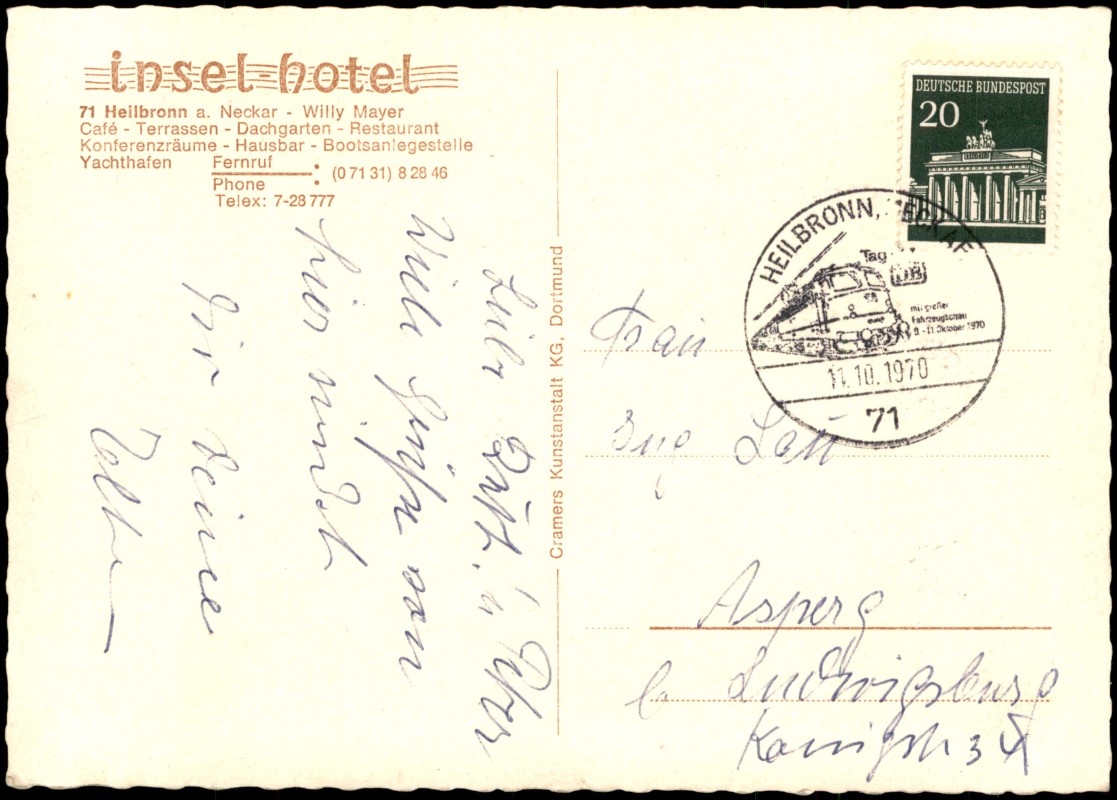 insel-hotel
71 Heilbronn a. Neckar - Willy Mayer
Café - Terrassen - Dachgarten - Restaurant
Konferenzräume - Hausbar - Bootsanlegestelle
Yachthafen Fernruf : (0 71 31) 8 28 46
Phone :
Telex: 7-28 777
Viele Grüße von
hier
Deine
Cramers Kunstanstalt KG, Dortmund
DEUTSCHE BUNDESPOST
20
HEILBRONN, NECKAR
Tag
DB
mit großer
Fahrzeugschau
9. - 11. Oktober 1970
11.10.1970
71
Frau
Asperg
b. Ludwigsburg